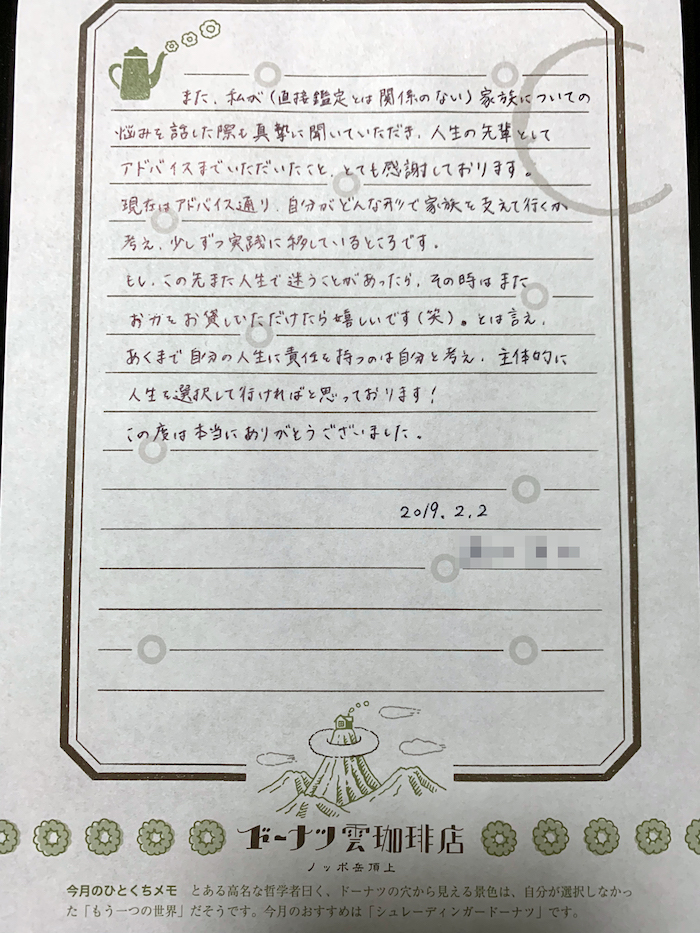 また、私が(直接鑑定とは関係のない)家族についての
悩みを話した際も真摯に聞いていただき、人生の先輩として
アドバイスまでいただいたこと、とても感謝しております。
現在はアドバイス通り、自分がどんな形で家族を支えて行くか
考え、少しずつ実践に移しているところです。
もし、この先また人生で迷うことがあったら、その時はまた
お力をお貸しいただけたら嬉しいです(笑)。とは言え、
あくまで自分の人生に責任を持つのは自分と考え、主体的に
人生を選択して行ければと思っております!
この度は本当にありがとうございました。
2019.2.2
ドーナツ雲珈琲店
ノッポ岳頂上
今月のひとくちメモ とある高名な哲学者曰く、ドーナツの穴から見える景色は、自分が選択しなかっ
た「もう一つの世界」だそうです。今月のおすすめは「シュレーディンガードーナツ」です。